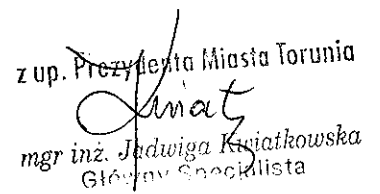 z up. Prezydenta Miasta Torunia
mgr inż. Jadwiga Kwiatkowska
Główny Specjalista